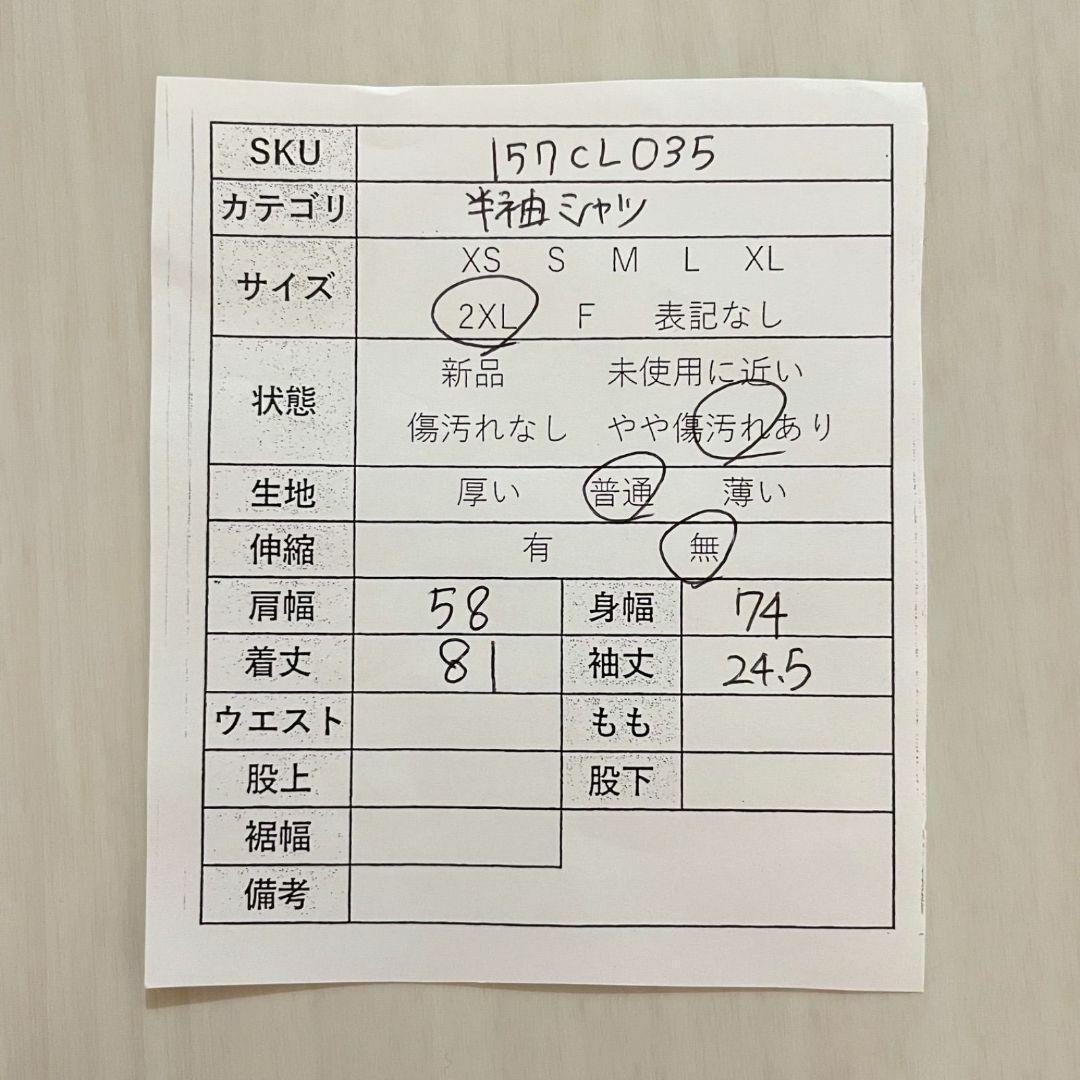 SKU 157CL035
カテゴリ 半袖シャツ
サイズ XS S M L XL
2XL F 表記なし
状態 新品 未使用に近い
傷汚れなし やや傷汚れあり
生地 厚い 普通 薄い
伸縮 有 無
肩幅 58 身幅 74
着丈 81 袖丈 24.5
ウエスト もも
股上 股下
裾幅
備考